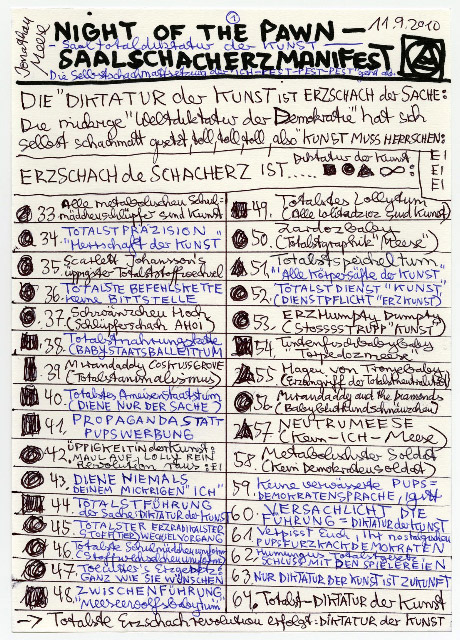 ①
Jonathan Meese
NIGHT OF THE PAWN —
11.9.2010
- Saaltotaldiktatur der KUNST -
SAALSCHACHERZMANIFEST
DIE "DIKTATUR der KUNST IST ERZSCHACH der SACHE:
Die mickrige "Weltdiktatur der Demokratie" hat sich
selbst schachmatt gesetzt, toll, toll, toll, also "KUNST MUSS HERRSCHEN:
ERZSCHACH de SCHACHERZ IST.....
Diktatur der Kunst
■ ● ▲ ∞ :
EI
EI
EI
33. Alle metabolischen Schul=
mädchenschlüpfer sind Kunst
34. TOTALSTPRÄZISION
"Herrschaft der KUNST
35. Scarlett Johansson's
üppigster Totalststoffwechsel
36. TOTALSTE BEFEHLSKETTE
Keine BITTSTELLE
37. Schwänzchen Hoch
(Schlüpferschach AHOI)
38. Totalstnahrungskette
(BABYSTAATSBALLETTUM
39. Mirandaddy
(Totalstanimalismus)
40. Totalstes Ameisenstaatstum
(DIENE NUR DER SACHE)
41. PROPAGANDA STATT
PUPSWERBUNG
42. ÜPPIGKEIT IN der KUNST:
MAUL AUF, LOLLY REIN
Revolution raus: EI
43. DIENE NIEMALS
DEINEM MICKRIGEN "ICH"
44. TOTALSTFÜHRUNG
der Sache: DIKTATUR der KUNST
45. TOTALSTER ERZRADIKALSTER
STOFF(TIER)WECHSELVORGANG
46. Totalste Schulmädchenuniform
(Stoffwechseluniform)
47. Toechter's Erzgebet:
GANZ WIE SIE WÜNSCHEN
48. ZWISCHENFÜHRUNG
"Meesewolfsbabytum"
49. Totalstes Lollytum
(Alle Lolitadzios sind Kunst)
50. Zardoz Baby
(Totalstgraphik "Meese")
51. Totalstspeicheltum
"Alle Körpersäfte der KUNST"
52. TOTALSTDIENST "KUNST"
(DIENSTPFLICHT "ERZKUNST)
53. ERZHumpty Dumpty
(STOSSSSTRUPP "KUNST")
54. Tintenfischbabybaby
"Torpedozmeese"
55. Hagen von Tronjebaby
(Erzangriff der Totalstneutralität)
56. Mirandaddy and the diamonds
57. NEUTRUMEESE
(Kein-ICH-Meese)
58. Metabolischster Soldat
(Kein Demokratensoldat)
59. Keine verwässerte PUPS=
DEMOKRATENSPRACHE, igitt
60. VERSACHLICHT DIE
FÜHRUNG = DIKTATUR der KUNST
61. Verpisst Euch, Ihr nostalgischen
PUPSFURZKACKDEMOKRATEN
62. Humorigstes Totalstgesetz
SCHLUSS MIT DEN SPIELEREIEN
63. NUR DIKTATUR DER KUNST IST ZUKUNFT
64. Totalst-DIKTATUR der KUNST
→ Totalste Erzschachrevolution erfolgt = DIKTATUR der KUNST